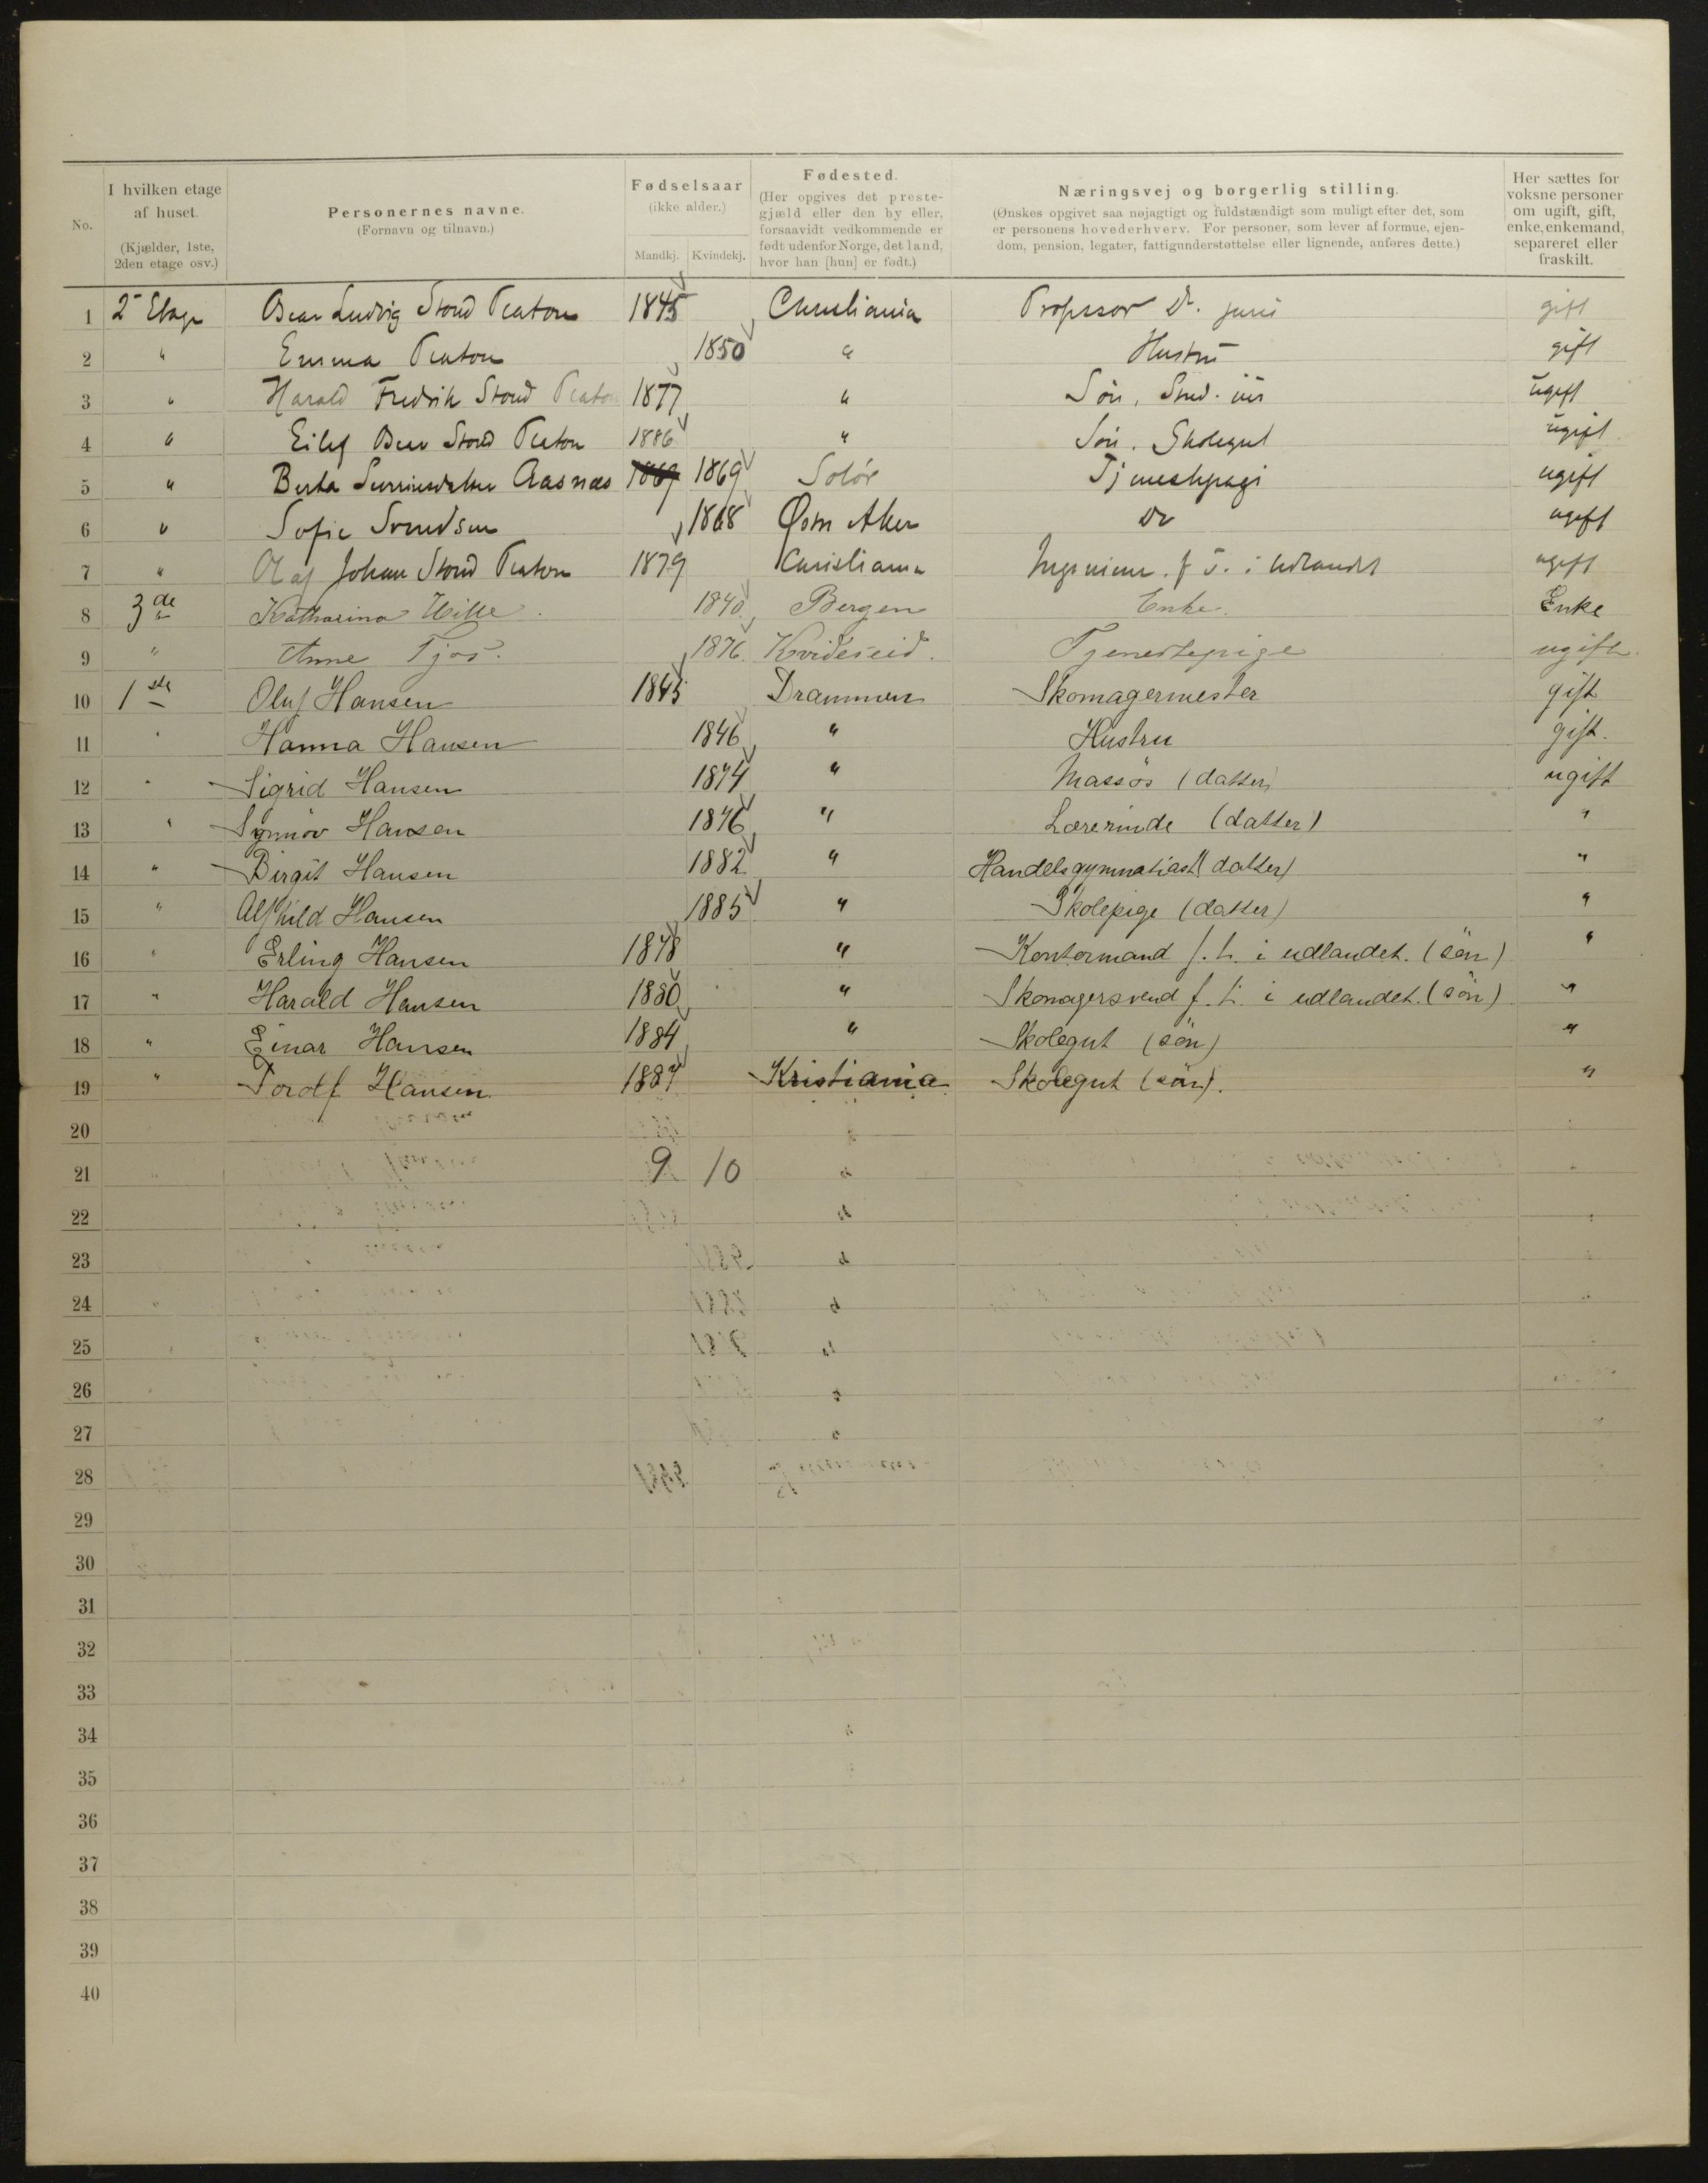 No.
I hvilken etage af huset. (Kjælder, 1ste, 2den etage osv.)
Personernes navne. (Fornavn og tilnavn.)
Fødselsaar (ikke alder.) Mandkj. Kvindekj.
Fødested. (Her opgives det prestegjæld eller den by eller, forsaavidt vedkommende er født udenfor Norge, det land, hvor han [hun] er født.)
Næringsvej og borgerlig stilling. (Ønskes opgivet saa nøjagtigt og fuldstændigt som muligt efter det, som er personens hovederhverv. For personer, som lever af formue, ejendom, pension, legater, fattigunderstøttelse eller lignende, anføres dette.)
Her sættes for voksne personer om ugift, gift, enke, enkemand, separeret eller fraskilt.
1 2 Etage Oscar Ludvig Stoud Platou 1845 Christiania Professor Dr. juris gift
2 " Emma Platou 1850 " Hustru gift
3 " Harald Fredrik Stoud Platou 1877 " Søn, Stud. jur ugift
4 " Eilif Oscar Stoud Platou 1886 " Søn. Skolegut ugift
5 " Berta Aasnæs 1869 1869 Solør Tjenestepige ugift
6 " Sofie Svendsen 1868 Østre Aker Do ugift
7 " Olaf Johan Stoud Platou 1879 Christiania Ingeniør. f. t. i Udlandet ugift
8 3de Katharina Hille 1840 Bergen Enke. Enke
9 " Anne Tjos. 1876 Kvideseid. Tjenestepige ugift.
10 1ste Oluf Hansen 1845 Drammen Skomagermester gift
11 " Hanna Hansen 1846 " Hustru gift.
12 " Sigrid Hansen 1874 " Massös (datter) ugift
13 " Synnöv Hansen 1876 " Lærerinde (datter) "
14 " Birgit Hansen 1882 " Handelsgymnasiast (datter) "
15 " Alfhild Hansen 1885 " Skolepige (datter) "
16 " Erling Hansen 1878 " Kontormand f. t. i udlandet. (sön) "
17 " Harald Hansen 1880 " Skomagersvend f. t. i udlandet. (sön) "
18 " Einar Hansen 1884 " Skolegut (sön) "
19 " Torolf Hansen 1887 Kristiania Skolegut (sön). "
20
21 9 10
22
23
24
25
26
27
28
29
30
31
32
33
34
35
36
37
38
39
40